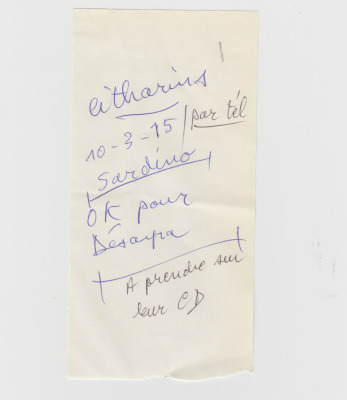 citharins
10-3-15 / par tél
Sardino
OK pour
Désarpa
A prendre sur
leur CD